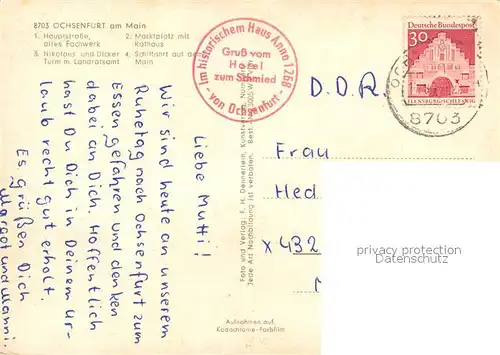 8703 OCHSENFURT am Main
1. Hauptstraße, altes Fachwerk
2. Marktplatz mit Rathaus
3. Nikolaus und Dicker Turm m. Landratsamt
4. Schiffahrt auf dem Main
Im historischem Haus Anno 1268
Gruß vom
Hotel
zum Schmied
- von Ochsenfurt -
Deutsche Bundespost
30
FLENSBURG/SCHLESWIG
8703
D.D.R.
Liebe Mutti!
Wir sind heute an unserem
Ruhetag nach Ochsenfurt zum
Essen gefahren und denken
dabei an Dich. Hoffentlich
hast Du Dich in Deinem Ur-
laub recht gut erholt.
Es grüßen Dich
Margot und Manni.
Foto und Verlag: F. H. Deinerlein,
Jede Art Nachbildung ist verboten. Best.
Aufnahmen auf
Kodachrome-Farbfilm
Frau
Hed
X 432
privacy protection
www.ansichtskarten-center.de